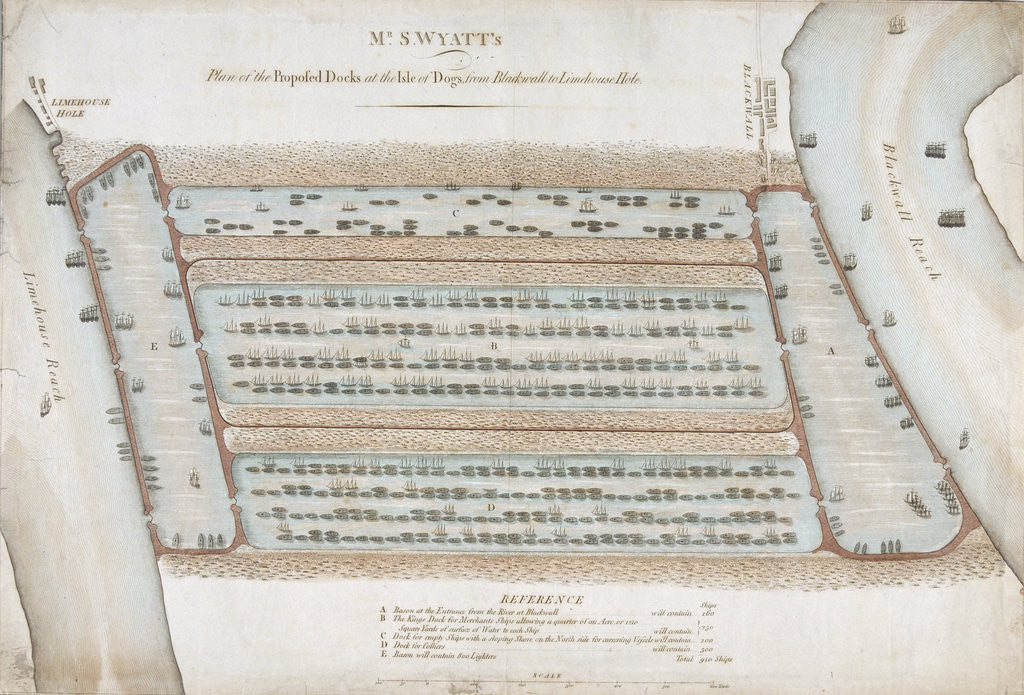 Mr. S. WYATT's
Plan of the Proposed Docks at the Isle of Dogs, from Blackwall to Limehouse Hole.
LIMEHOUSE
HOLE
BLACKWALL
Blackwall Reach
Limehouse Reach
C
E
B
A
D
REFERENCE
Ships
A Bason at the Entrance from the River at Blackwall will contain 160
B The Kings Dock for Merchants Ships allowing a quarter of an Acre, or 1210
Square Yards of surface of Water to each Ship will contain 250
C Dock for empty Ships with a sloping Shore on the North side for careening Vessels will contain 200
D Dock for Colliers will contain 300
E Bason will contain 800 Lighters Total 910 Ships
SCALE